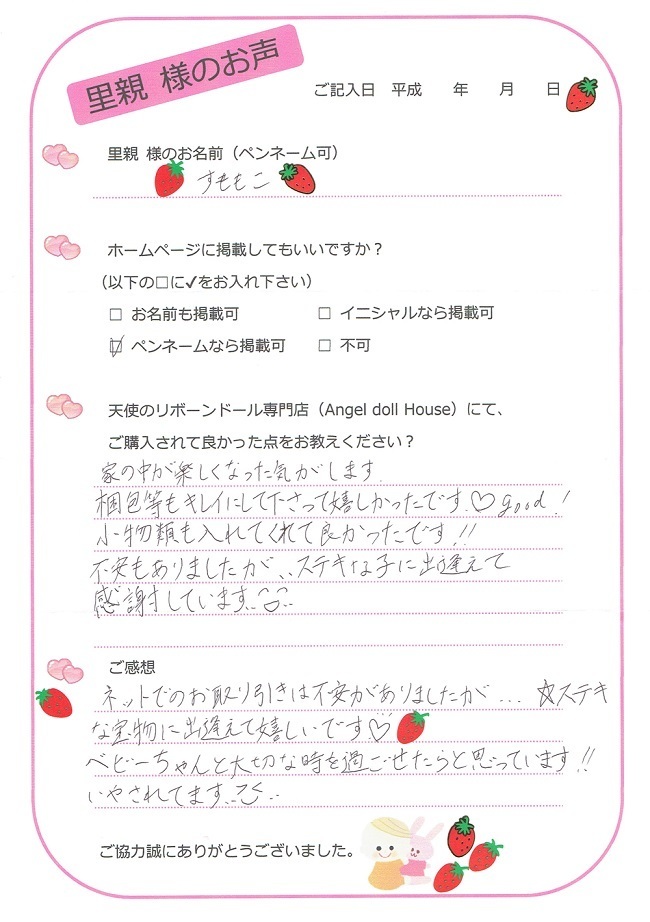 里親 様のお声
ご記入日 平成 年 月 日
里親 様のお名前（ペンネーム可）
すももこ
ホームページに掲載してもいいですか？
（以下の□に✓をお入れ下さい）
□ お名前も掲載可 □ イニシャルなら掲載可
☑ ペンネームなら掲載可 □ 不可
天使のリボーンドール専門店（Angel doll House）にて、
ご購入されて良かった点をお教えください？
家の中が楽しくなった気がします.
梱包等もキレイにして下さって嬉しかったです.♡good!
小物類も入れてくれて良かったです!!
不安もありましたが、、ステキな子に出逢えて
感謝しています..
ご感想
ネットでのお取り引きは不安がありましたが... ☆ステキ
な宝物に出逢えて嬉しいです♡
ベビーちゃんと大切な時を過ごせたらと思っています!!
いやされてます..
ご協力誠にありがとうございました。